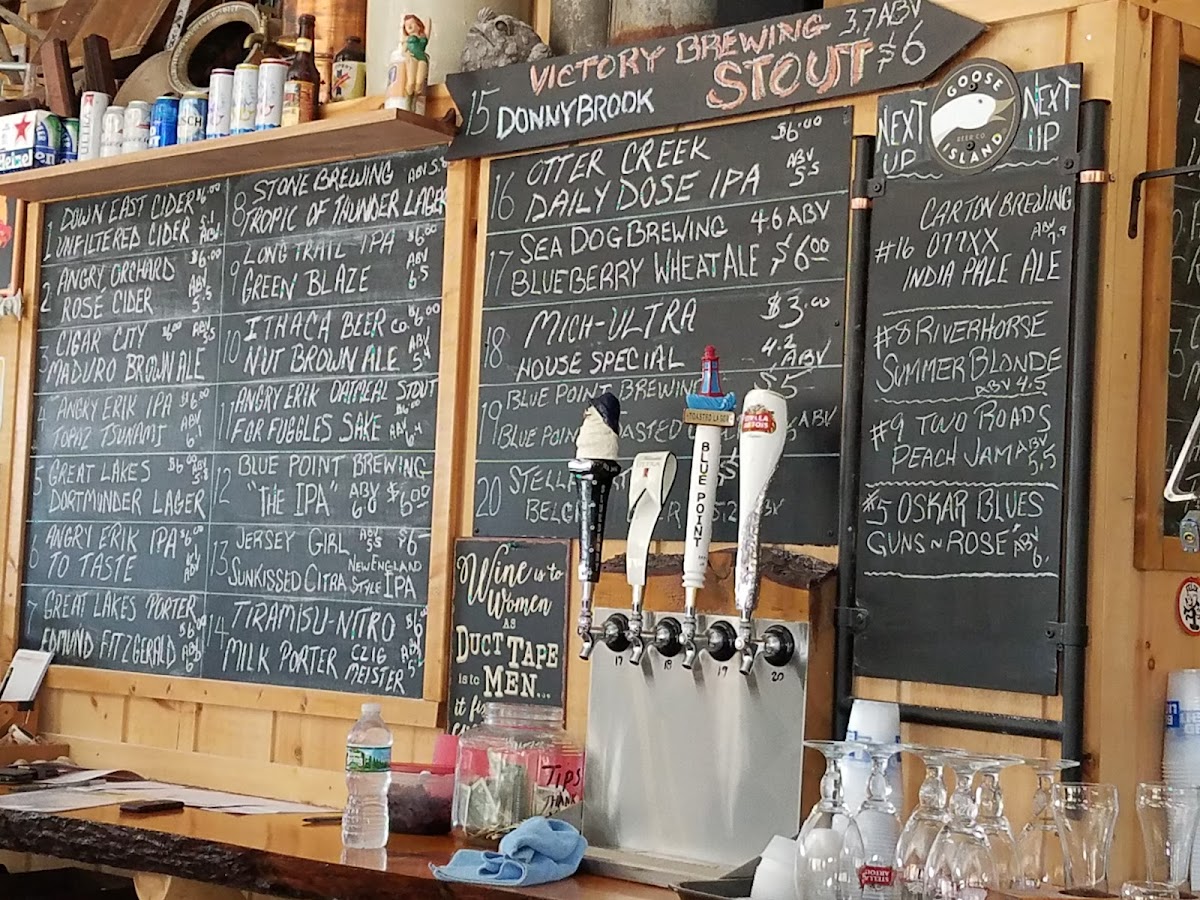 VICTORY BREWING 3.7 ABV
15 DONNYBROOK STOUT $6
1 DOWN EAST CIDER $6.00
UNFILTERED CIDER 5.1 ABV
2 ANGRY ORCHARD $6.00
ROSÉ CIDER ABV 5.5
3 CIGAR CITY $6.00 ABV 5.5
MADURO BROWN ALE
4 ANGRY ERIK IPA $6.00
TOPAZ TSUNAMI ABV
5 GREAT LAKES $6.00 ABV 5.8
DORTMUNDER LAGER
6 ANGRY ERIK IPA $6.00
TO TASTE ABV
7 GREAT LAKES PORTER
EDMUND FITZGERALD $6.00 ABV
8 STONE BREWING ABV 5.8
TROPIC OF THUNDER LAGER
9 LONG TRAIL IPA $6.00
GREEN BLAZE ABV 6.5
10 ITHACA BEER CO. $6.00
NUT BROWN ALE ABV 5.4
11 ANGRY ERIK OATMEAL STOUT
FOR FUGGLES SAKE $6.00 ABV 6.4
12 BLUE POINT BREWING
"THE IPA" ABV 6.8 $6.00
13 JERSEY GIRL ABV 5.5 $6-
SUNKISSED CITRA NEW ENGLAND STYLE IPA
14 TIRAMISU-NITRO $6
MILK PORTER CZIG MEISTER ABV
16 OTTER CREEK $6.00
DAILY DOSE IPA ABV 5.5
17 SEA DOG BREWING 4.6 ABV
BLUEBERRY WHEAT ALE $6.00
18 MICH-ULTRA $3.00
HOUSE SPECIAL 4.2 ABV
19 BLUE POINT BREWING $5
BLUE POINT TOASTED ABV
20 STELLA
NEXT UP
NEXT UP
GOOSE ISLAND
BEER CO.
CARTON BREWING
#16 077XX ABV 7.8
INDIA PALE ALE
#8 RIVERHORSE
SUMMER BLONDE
ABV 4.5
#9 TWO ROADS
PEACH JAM ABV 5.5
#5 OSKAR BLUES
GUNS~N ROSE ABV 6.
Wine is to
Women
AS
DUCT TAPE
is to MEN...
it
TOASTED LAGER
BLUE POINT
STELLA ARTOIS
17 18 19 20
TIPS
THANK
STELLA ARTOIS